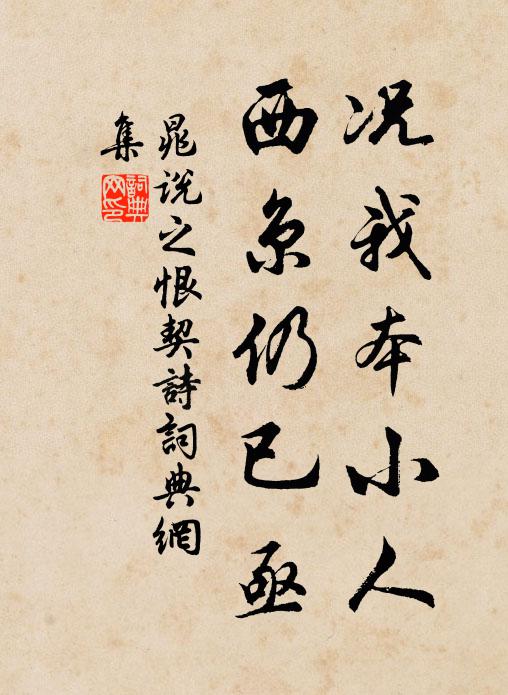 况我本小人
西京仍已亟
晁说之恨契詩詞典網
集
詞典网印